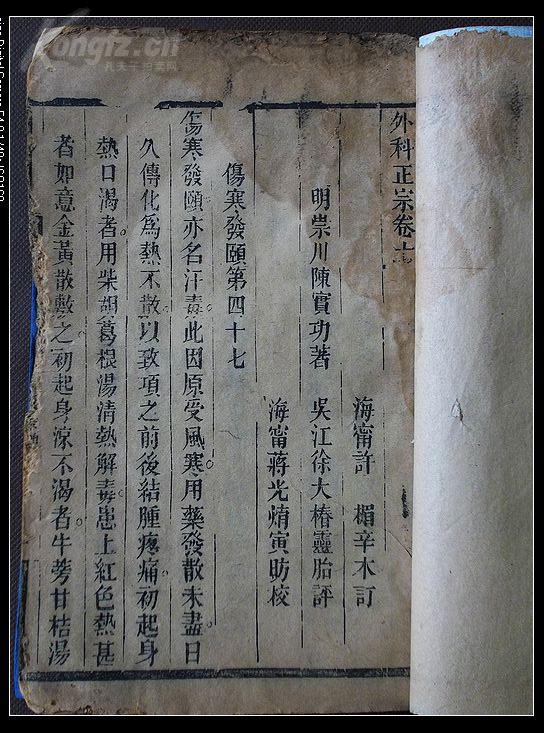 外科正宗卷十
海甯許 楣辛木訂
明崇川陳實功著 吳江徐大椿靈胎評
海甯蔣光焴寅昉校
傷寒發頤第四十七
傷寒發頤亦名汗毒此因原受風寒用藥發散未盡日
久傳化為熱不散以致項之前後結腫疼痛初起身
熱口渴者用柴胡葛根湯清熱解毒患上紅色熱甚
者如意金黃散敷之初起身涼不渴者牛蒡甘桔湯
Kongfz.cn